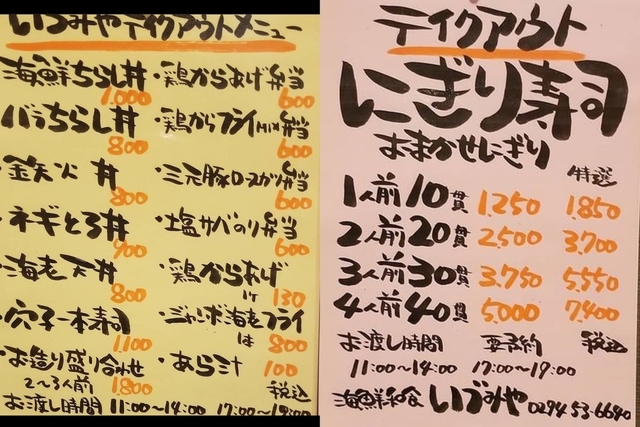 いづみやテイクアウトメニュー
海鮮ちらし丼
1,000
バラちらし丼
800
鉄火丼
800
ネギとろ丼
900
海老天丼
800
穴子一本寿司
1,100
お造り盛り合わせ
2〜3人前 1,800
・鶏からあげ弁当
600
・鶏からフライMIX弁当
600
・三元豚ロースカツ弁当
600
・塩サバのり弁当
600
・鶏からあげ
1ケ 130
・ジャンボ海老フライ
1本 800
・あら汁 100
税込
お渡し時間 11:00〜14:00 17:00〜19:00
テイクアウト
にぎり寿司
おまかせにぎり
特選
1人前10貫 1,250 1,850
2人前20貫 2,500 3,700
3人前30貫 3,750 5,550
4人前40貫 5,000 7,400
お渡し時間 要予約 税込
11:00〜14:00 17:00〜19:00
海鮮和食 いづみや 0294-53-6640